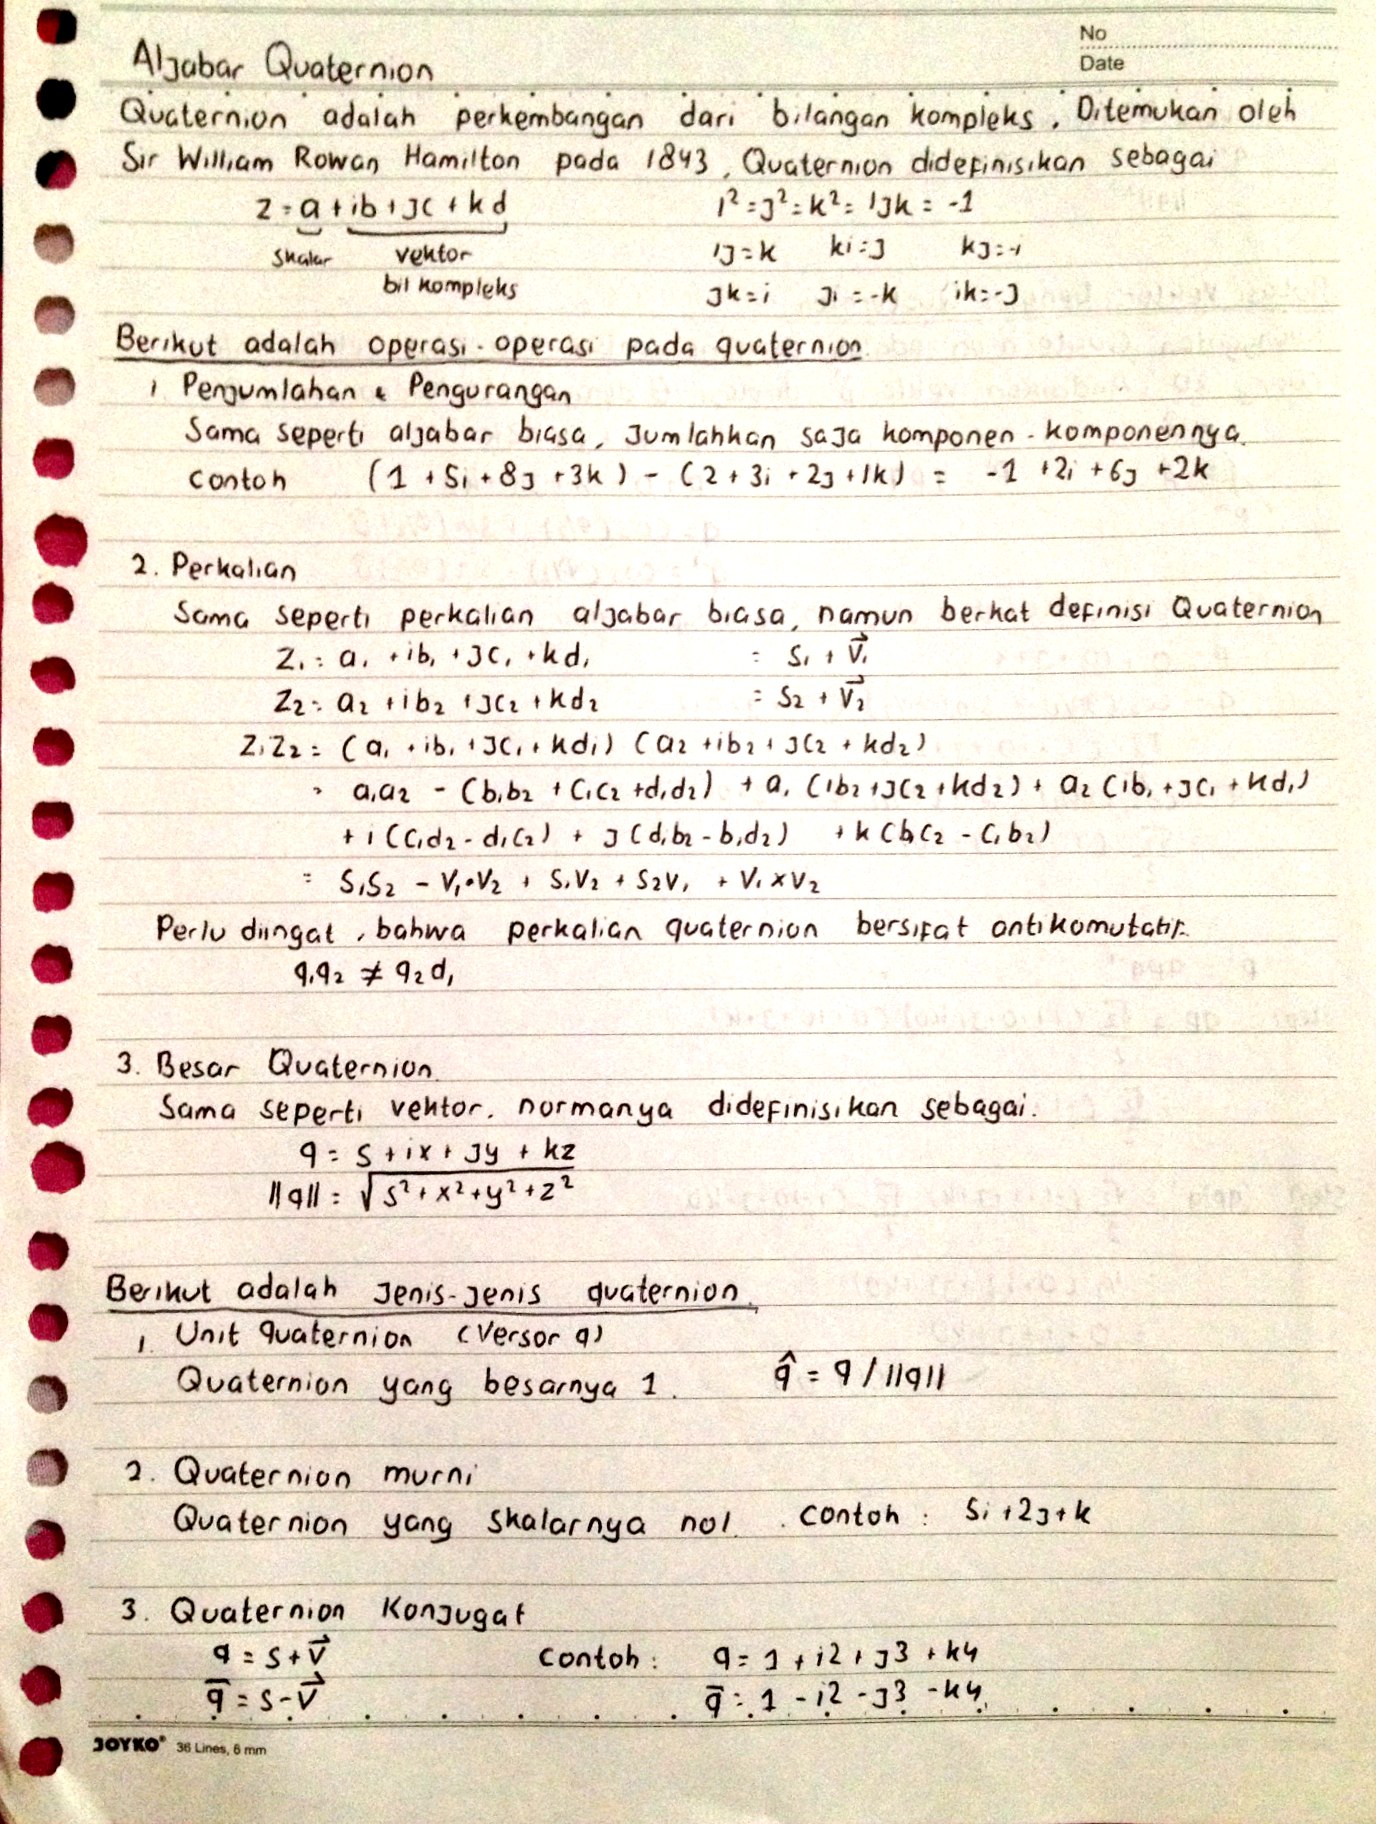 No
Date
Aljabar Quaternion
Quaternion adalah perkembangan dari bilangan kompleks, Ditemukan oleh
Sir William Rowan Hamilton pada 1843, Quaternion didefinisikan sebagai
z = a + ib + jc + kd    i² = j² = k² = ijk = -1
skalar    vektor    ij = k    ki = j    kj = -i
bil kompleks    jk = i    ji = -k    ik = -j
Berikut adalah operasi-operasi pada quaternion
1 Penjumlahan & Pengurangan
Sama seperti aljabar biasa, jumlahkan saja komponen-komponennya.
contoh    (1 + 5i + 8j + 3k) - (2 + 3i + 2j + 1k) = -1 + 2i + 6j + 2k
2. Perkalian
Sama seperti perkalian aljabar biasa, namun berkat definisi Quaternion
Z₁ = a₁ + ib₁ + jc₁ + kd₁    = S₁ + V⃗₁
Z₂ = a₂ + ib₂ + jc₂ + kd₂    = S₂ + V⃗₂
Z₁Z₂ = (a₁ + ib₁ + jc₁ + kd₁) (a₂ + ib₂ + jc₂ + kd₂)
= a₁a₂ - (b₁b₂ + c₁c₂ + d₁d₂) + a₁ (ib₂ + jc₂ + kd₂) + a₂ (ib₁ + jc₁ + kd₁)
+ i (c₁d₂ - d₁c₂) + j (d₁b₂ - b₁d₂) + k (b₁c₂ - c₁b₂)
= S₁S₂ - V₁•V₂ + S₁V₂ + S₂V₁ + V₁×V₂
Perlu diingat, bahwa perkalian quaternion bersifat antikomutatif.
q₁q₂ ≠ q₂d₁
3. Besar Quaternion
Sama seperti vektor. normanya didefinisikan sebagai.
q = s + ix + jy + kz
||q|| = √(s² + x² + y² + z²)
Berikut adalah jenis-jenis quaternion.
1. Unit quaternion (Versor q)
Quaternion yang besarnya 1.    q̂ = q / ||q||
2. Quaternion murni
Quaternion yang skalarnya nol. contoh : 5i + 2j + k
3. Quaternion Konjugat
q = s + v⃗    contoh :    q = 1 + i2 + j3 + k4
q̅ = s - v⃗    q̅ = 1 - i2 - j3 - k4
JOYKO® 36 Lines, 6 mm